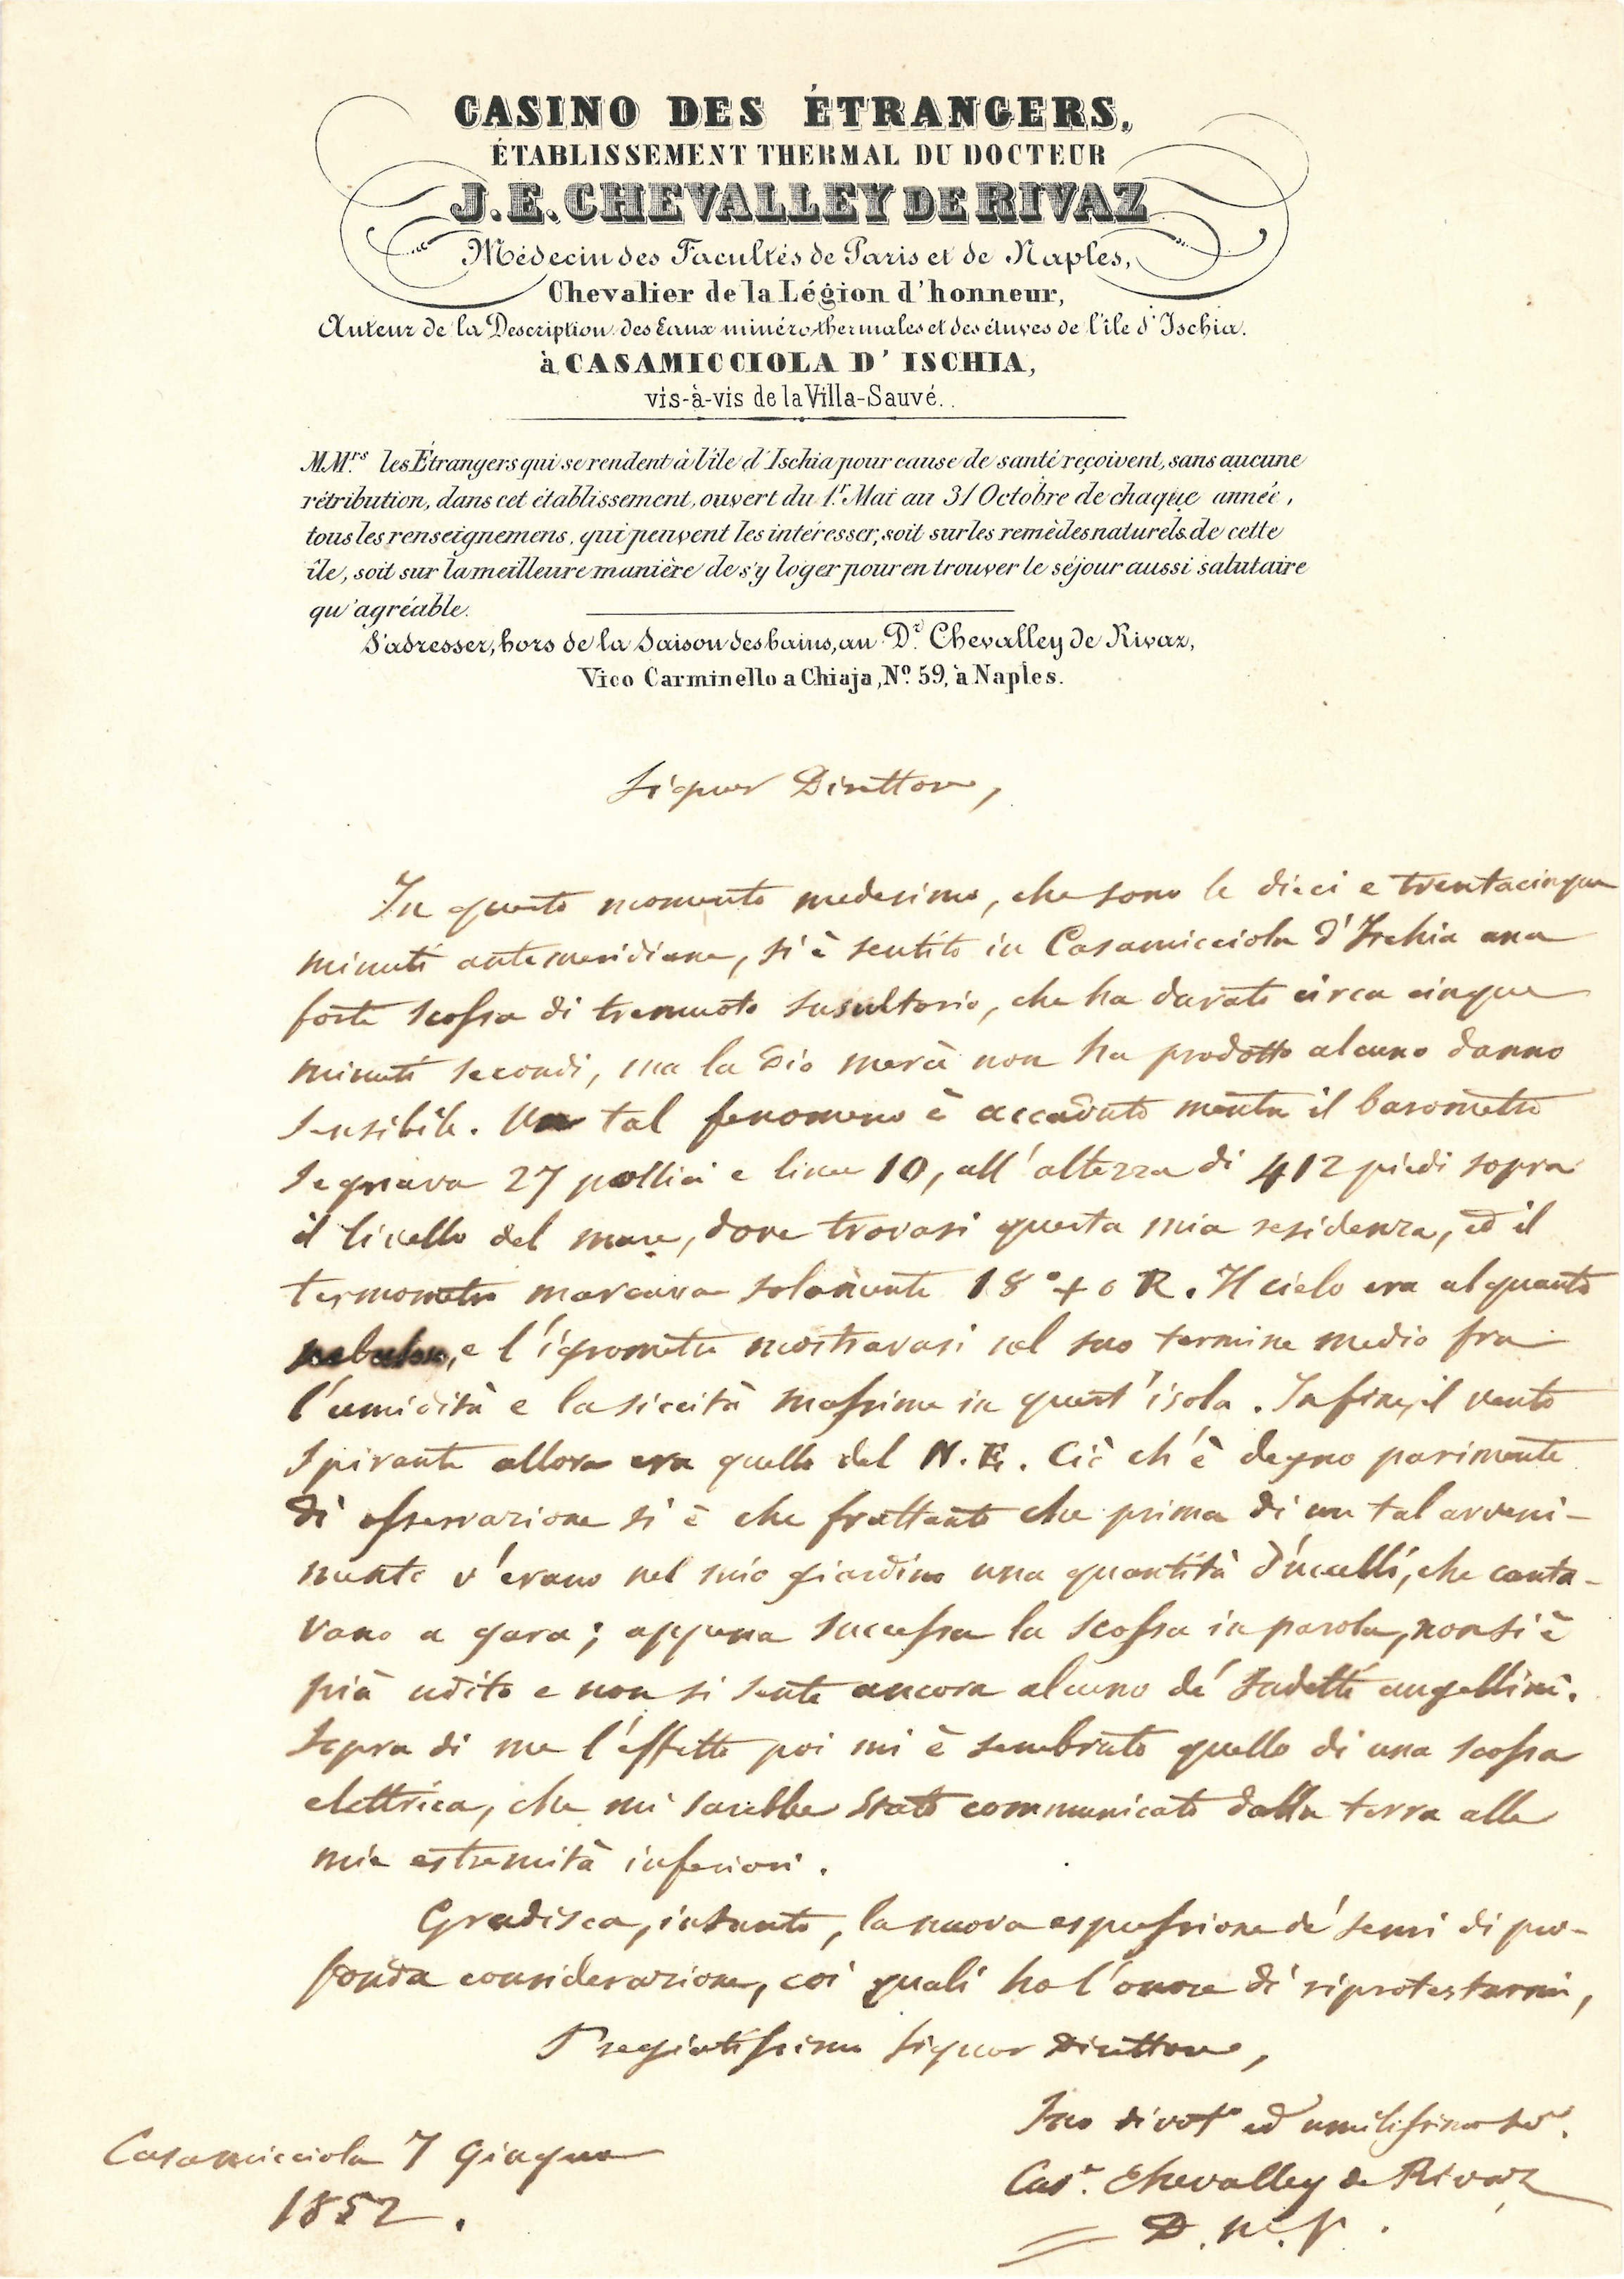 CASINO DES ÉTRANGERS,
ÉTABLISSEMENT THERMAL DU DOCTEUR
J. E. CHEVALLEY DE RIVAZ
Médecin des Facultés de Paris et de Naples,
Chevalier de la Légion d'honneur,
Auteur de la Description des Eaux minéro-thermales et des étuves de l'île d'Ischia.
à CASAMICCIOLA D' ISCHIA,
vis-à-vis de la Villa-Sauvé.
M.M.rs les Étrangers qui se rendent à l'île d'Ischia pour cause de santé reçoivent, sans aucune
rétribution, dans cet établissement, ouvert du 1.r Mai au 31 Octobre de chaque année,
tous les renseignemens, qui peuvent les intéresser, soit sur les remèdes naturels de cette
île, soit sur la meilleure manière de s'y loger pour en trouver le séjour aussi salutaire
qu'agréable.
S'adresser, hors de la Saison des bains, au D.r Chevalley de Rivaz,
Vico Carminello a Chiaja, N.o 59, à Naples.
Signor Direttore,
In questo momento medesimo, che sono le dieci e trentacinque
minuti antemeridiane, si è sentito in Casamicciola d'Ischia una
forte scossa di tremuoto susultorio, che ha durato circa cinque
minuti secondi, ma la Dio mercè non ha prodotto alcuno danno
sensibile. Un tal fenomeno è accaduto mentre il barometro
segnava 27 pollici e linee 10, all'altezza di 412 piedi sopra
il livello del mare, dove trovasi questa mia residenza, ed il
termometro marcava solamente 18° + 0 R. Il cielo era alquanto
nebuloso, e l'igrometro mostravasi sul suo termine medio fra
l'umidità e la siccità massima in quest'isola. Infine, il vento
spirante allora era quello del N. E. Ciò ch'è degno parimente
di osservazione si è che frattanto che prima di un tal avveni-
mento v'erano nel mio giardino una quantità d'uccelli, che canta-
vano a gara; appena successa la scossa in parola, non si è
più udito e non si sente ancora alcuno de' sudetti augellini.
Sopra di me l'effetto poi mi è sembrato quello di una scossa
elettrica, che mi sarebbe stato communicato dalla terra alle
mie estremità inferiori.
Gradisca, intanto, la nuova espressione de' sensi di pro-
fonda considerazione, coi quali ho l'onore di riprotestarmi,
Pregiatissimo Signor Direttore,
Suo divot.o ed umilissimo se.e
Cas.r Chevalley de Rivaz
D. M. P.
Casamicciola 7 Giugno
1852.